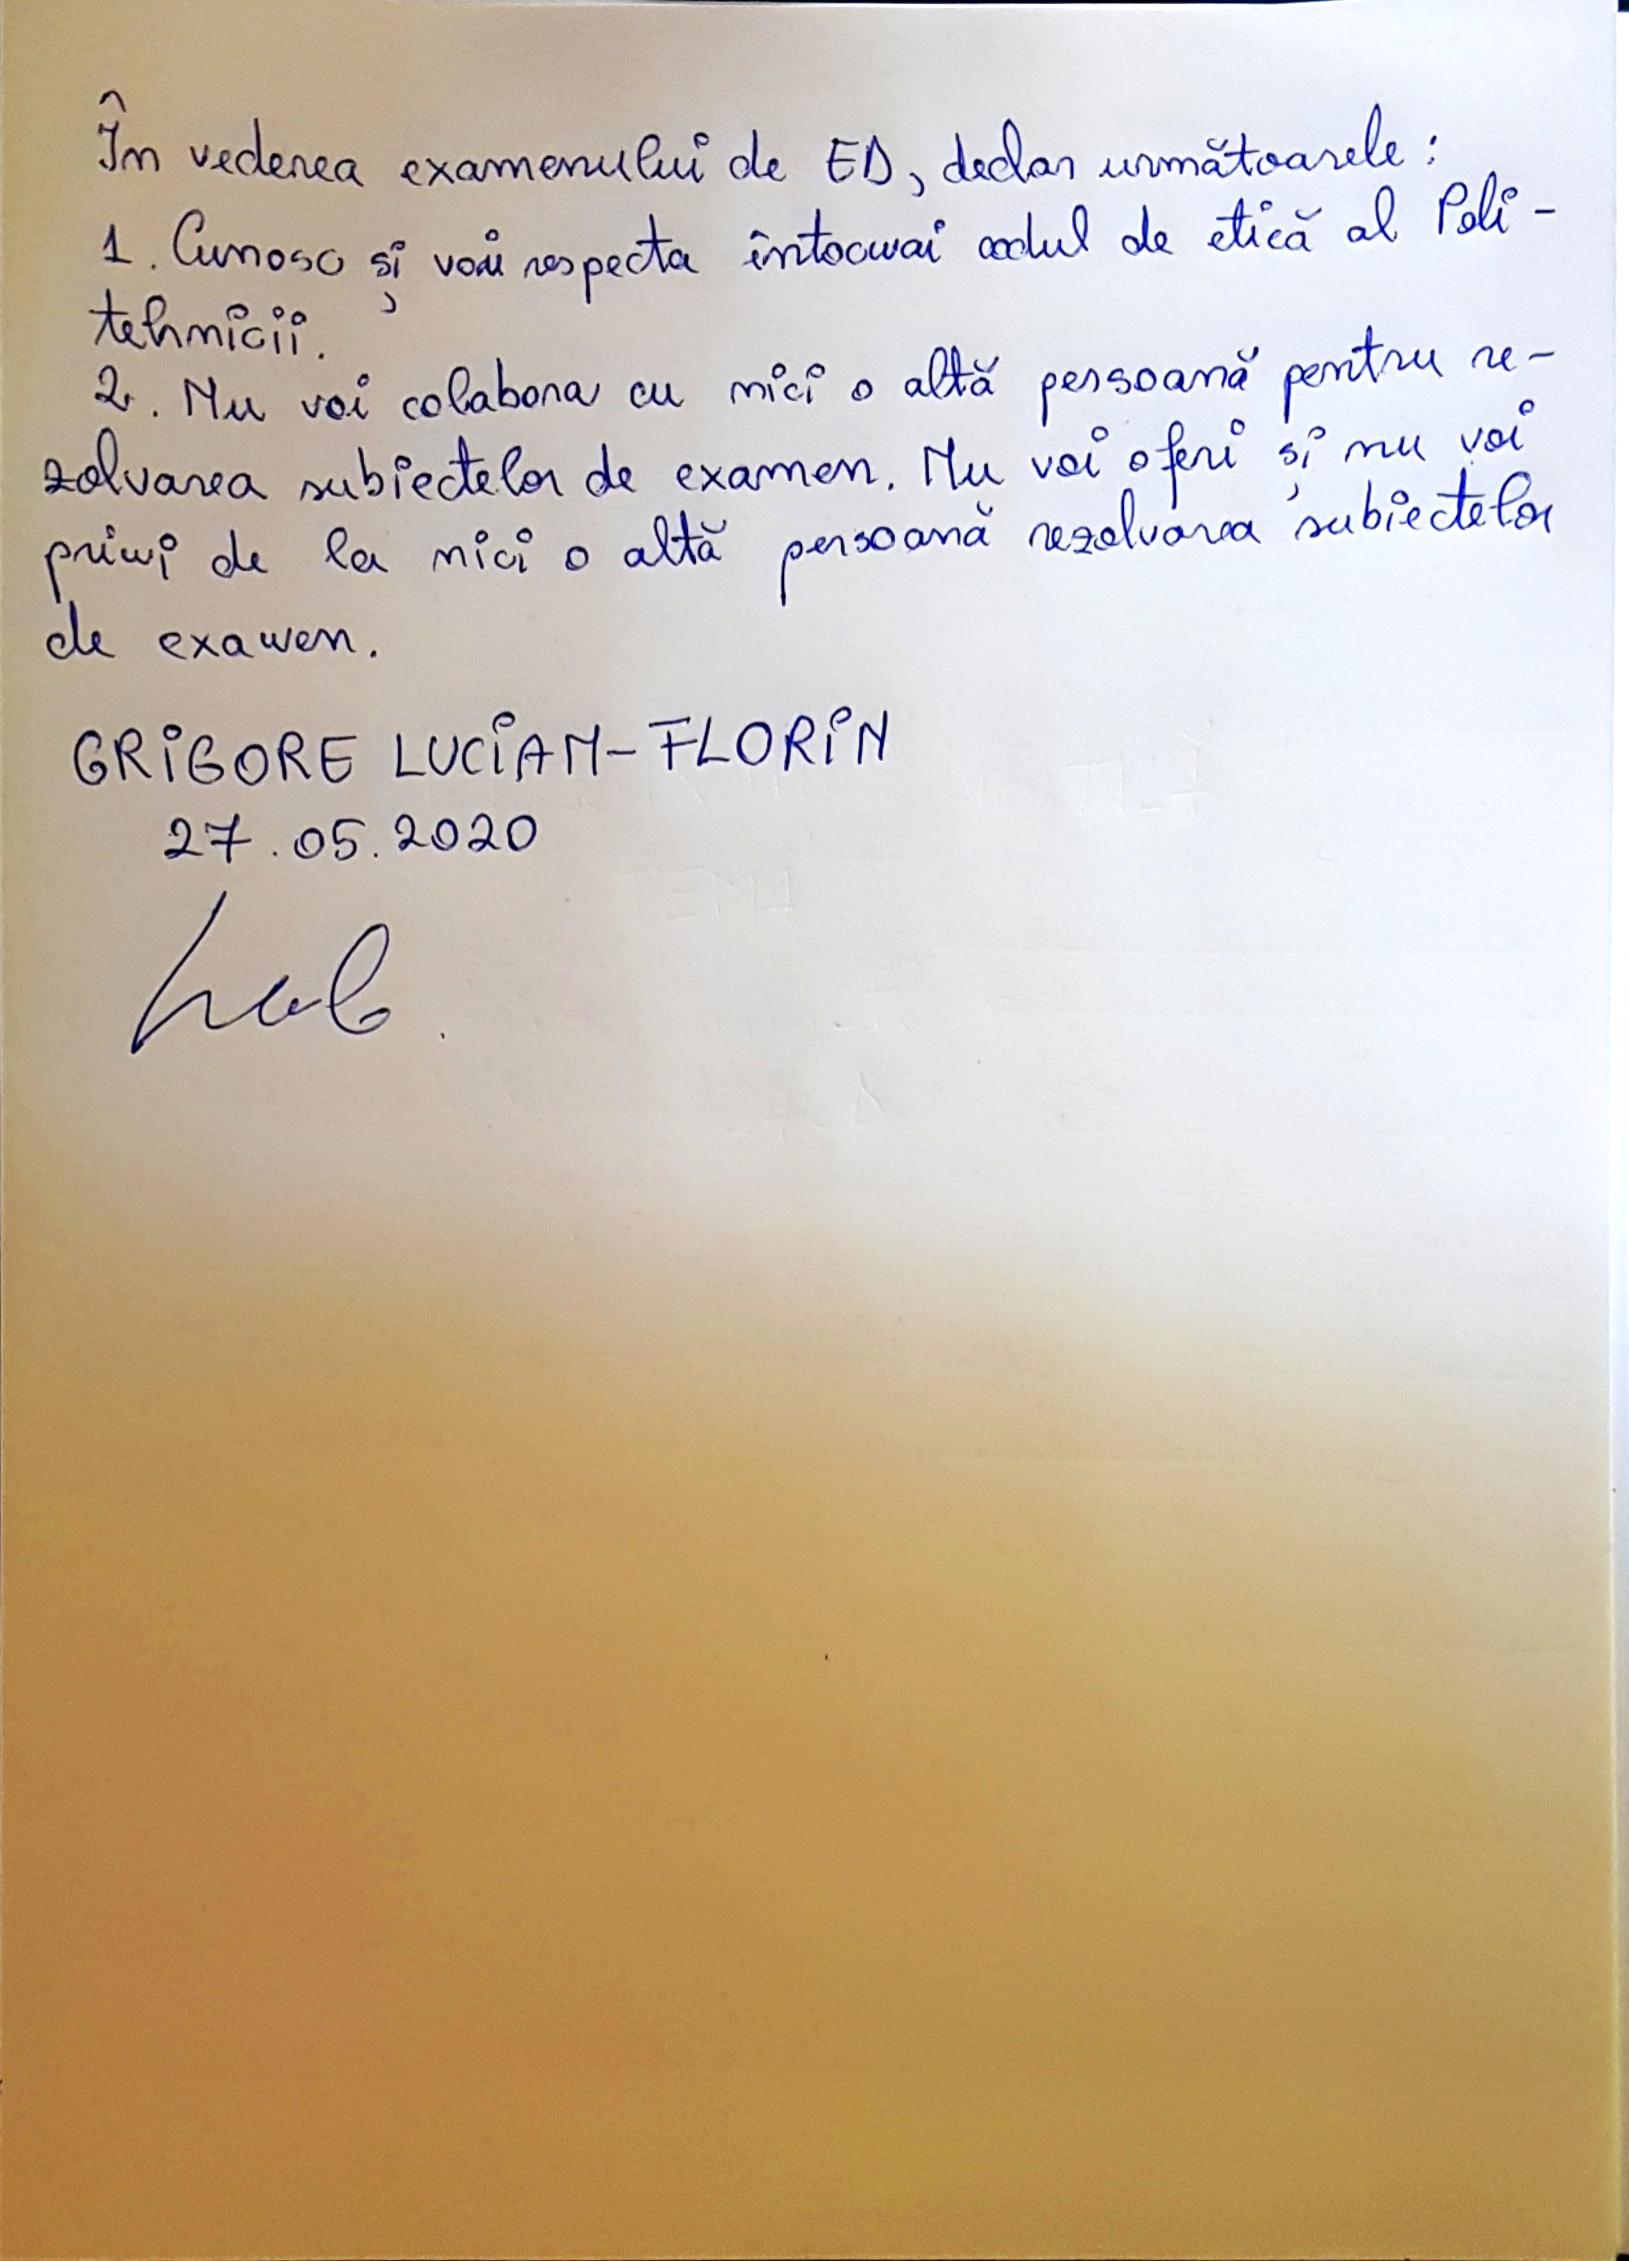 În vederea examenului de ED, declar următoarele:
1. Cunosc și voi respecta întocmai codul de etică al Poli-
tehnicii.
2. Nu voi colabora cu nici o altă persoană pentru re-
zolvarea subiectelor de examen. Nu voi oferi și nu voi
primi de la nici o altă persoană rezolvarea subiectelor
de examen.
GRIGORE LUCIAN-FLORIN
27.05.2020